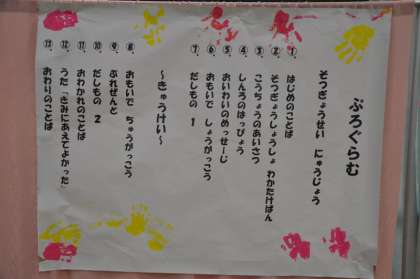 ぷろぐらむ
そつぎょうせい にゅうじょう
① はじめのことば
② そつぎょうしょうしょ わかたけばん
③ こうちょうのあいさつ
④ しんろのはっぴょう
⑤ おいわいのめっせーじ
⑥ おもいで しょうがっこう
⑦ だしもの 1
～きゅうけい～
⑧ おもいで ちゅうがっこう
⑨ ぷれぜんと
⑩ だしもの 2
⑪ おわかれのことば
⑫ うた「きみにあえてよかった」
⑬ おわりのことば